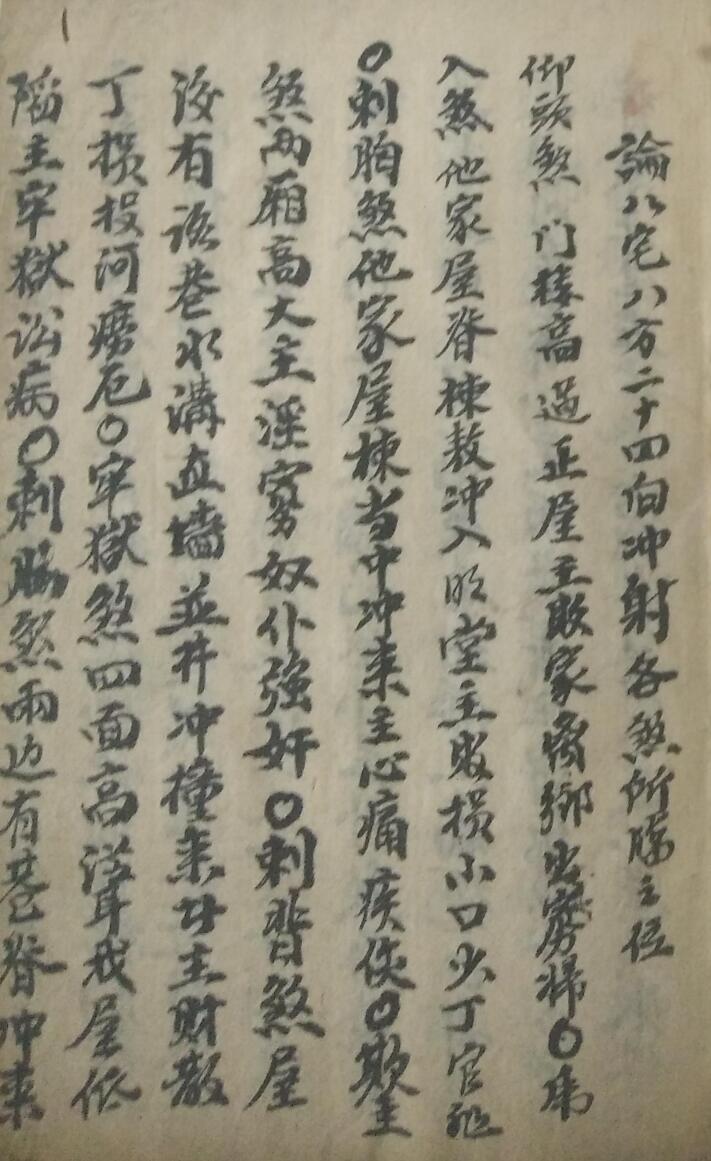 論八宅八方二十四向冲射各煞所臨之位
御頭煞门楼高過正屋主敗家离鄉出寡婦〇
入煞他家屋脊棟敖冲入明堂主敗損小口少丁官
〇刺胸煞他家屋棟当中冲来主心痛疾〇欺主
煞两厢高大主淫寡奴仆強奸〇刺背煞屋
後有路巷水溝直墙並井冲撞来主財散
丁損投河〇牢獄煞四面高我屋低
陷主牢獄訟病〇刺脇煞兩边有巷脊冲来